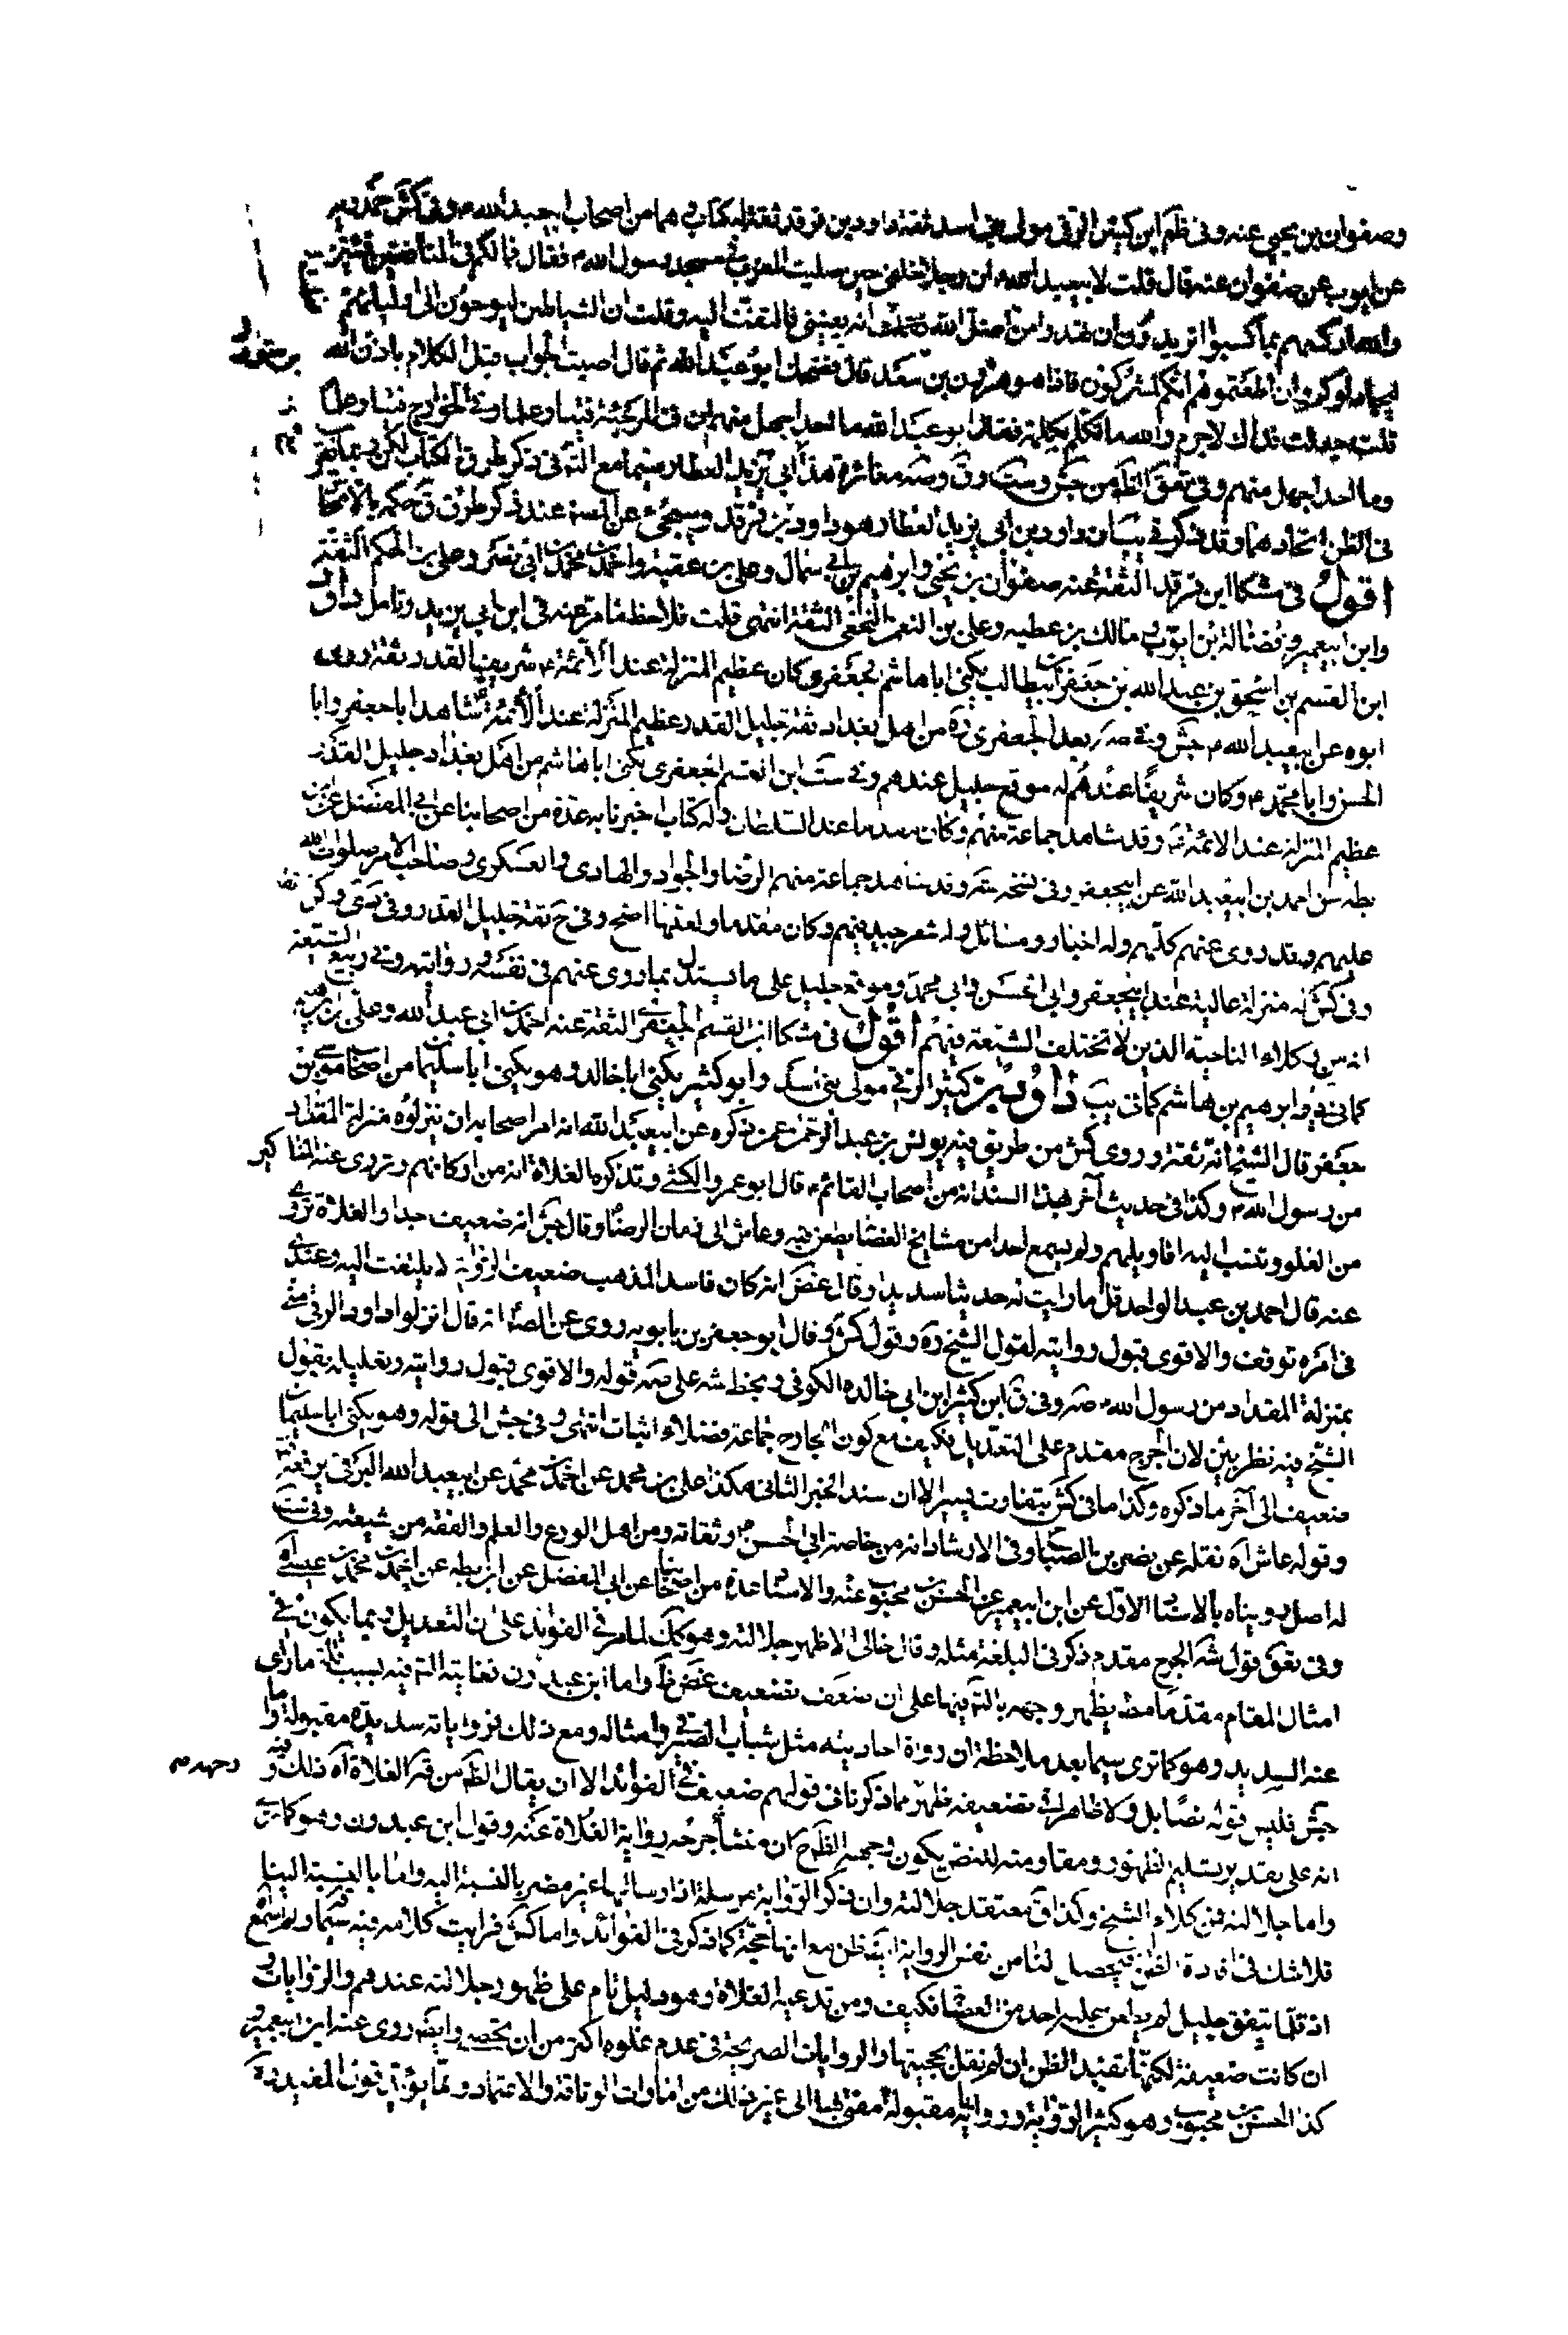 وصفوان بن يحيى عنه وفي ظم ابن كثير الرقى مولى بني اسد ثقة داود بن فرقد ثقة له كتاب هما من اصحاب ابيعبد الله ع وفي كش حمدويه
عن ايوب عن صفوان عنه قال قلت لابيعبد الله ع ان رجلا خلفى حين صليت المغرب في مسجد رسول الله ص فقال فما لكم في المنافقين فئتين
والله اركسهم بما كسبوا اتريدون ان تهدوا من اضل الله فعلمت انه يعنينى فالتفت اليه وقلت ان الشياطين ليوحون الى اوليائهم
ليجادلوكم وان اطعتموهم انكم لمشركون فاذا هو هرون بن سعد قال فضحك ابو عبد الله ثم قال اصبت الجواب قبل الكلام باذن الله
قلت جعلت فداك لا جرم والله ما تكلم بكلمة فقال ابو عبد الله ما احد اجهل منهم ان في المرجئة فتيا وعلما وفي الخوارج فتيا وعلما
وما احد اجهل منهم وفي تعق الظ من جش وست وق
في الظن اتحادهما وقد ذكر في بيان داود بن ابي يزيد العطار هو داود بن فرقد وسيجئ عن المصنف عند ذكر طرق ق حكمه بالاتحاد
اقول في مشكا ابن فرقد الثقة عنه صفوان بن يحيى وابرهيم بن ابي سمال وعلى بن عقبة واحمد بن محمد بن ابي نصر وعلى بن الحكم الثقة
وابن ابيعمير وفضالة بن ايوب ومالك بن عطيه وعلى بن النعمن النخعى الثقة انتهى قلت فلاحظ ما مر عنه في ابن ابي يزيد وتامل داود
ابن القسم بن اسحق بن عبد الله بن جعفر بن ابيطالب يكنى ابا هاشم الجعفرى كان عظيم المنزلة عند الائمة ع شريف القدر ثقة روى
ابوه عن ابيعبد الله ع جش وفي صه بعد الجعفرى ره من اهل بغداد ثقة جليل القدر عظيم المنزلة عند الائمة ع شاهد ابا جعفر وابا
الحسن وابا محمد ع وكان شريفا عندهم له موقع جليل عندهم وفي ست ابن القسم الجعفرى يكنى ابا هاشم من اهل بغداد جليل القدر
عظيم المنزلة عند الائمة ع وقد شاهد جماعة منهم وكان مقدما عند السلطان وله كتاب اخبرنا به عدة من اصحابنا عن ابي المفضل عن ابن
بطه عن احمد بن ابيعبد الله عن ابيجعفر وفي نسخه شه وقد شاهد جماعة منهم الرضا والجواد والهادى والعسكرى وصاحب الامر صلوات الله
عليهم وقد روى عنهم كلهم وله اخبار ومسائل وله شعر جيد فيهم وكان مقدما ولعلها اصح وفي ج ثقة جليل القدر وفي دى وكر ثقة
وفي كش له منزلة عالية عند ابيجعفر وابي الحسن وابي محمد وموقع جليل على ما يستدل بما روى عنهم في نفسه وروايته وفي ربيع الشيعة
انه من وكلاء الناحية الذين لا تختلف الشيعة فيهم اقول في مشكا ابن القسم الجعفرى الثقة عنه احمد بن ابي عبد الله وعلى بن ابرهيم
كما في ق وابرهيم بن هاشم كما في يب داود بن كثير الرقى مولى بني اسد وابو كثير يكنى ابا خالد وهو يكنى ابا سليمان من اصحاب موسى بن
جعفر قال الشيخ انه ثقة وروى كش من طريق فيه يونس بن عبد الرحمن عمن ذكره عن ابيعبد الله انه امر اصحابه ان ينزلوه منزلة المقداد
من رسول الله ص وكذا في حديث آخر بهذا السند انه من اصحاب القائم ع قال ابو عمرو الكشى وتذكره الغلاة انه من اركانهم وتروى عنه المناكير
من الغلو وتنسب اليه اقاويلهم ولم يسمع احدا من مشايخ العصابة يطعن فيه وعاش الى زمان الرضا وقال جش انه ضعيف جدا والغلاة تروى
عنه قال احمد بن عبد الواحد قل ما رايت له حديثا سديدا وقال غض انه كان فاسد المذهب ضعيف الرواية لا يلتفت اليه وعندى
في امره توقف والاقوى قبول روايته لقول الشيخ ره وقول كش وقال ابو جعفر بن بابويه روى عن الصادق انه قال انزلوا داود الرقى منى
بمنزلة المقداد من رسول الله ص صه وفي ق ابن كثير ابن ابي خالده الكوفى وبخط شه على صه قوله والاقوى قبول روايته وتعليله بقول
الشيخ فيه نظر بين لان الجرح مقدم على التعديل فكيف مع كون الجارح جماعة فضلاء اثبات انتهى وفي جش الى قوله وهو يكنى ابا سليمان
ضعيف الى آخر ما ذكره وكذا ما في كش بتفاوت يسير الا ان سند الخبر الثانى هكذا على بن محمد عن احمد بن محمد عن ابيعبد الله البرقى يرفعه
وقوله عاش اه نقله عن نصر بن الصباح وفي الارشاد انه من خاصة ابي الحسن ع وثقاته ومن اهل الورع والعلم والفقه من شيعته وفي ست
له اصل رويناه بالاسناد الاول عن ابن ابيعمير عن الحسن بن محبوب عنه والاسناد عدة من اصحابنا عن ابي المفضل عن ابن بطه عن احمد بن محمد بن عيسى
وفي تعق قول شه الجرح مقدم ذكر في البلغة مثله وقال خالى الاظهر جلالته وهو كك لما مر في الفوائد على ان التعديل ربما يكون في
امثال المقام مقدما مط يظهر وجهه بالت فيها على ان ضعف تضعيف غض ظ واما ابن عبدون نفايته الت فيه بسبب قلة ما راى
عنه السديد وهو كما ترى سيما بعد ملاحظة ان رواة احاديثه مثل شباب الصيرفى وامثاله ومع ذلك فرواياته سديدة مقبولة واما
جش فليس قوله نصا بل ولا ظاهرا في تضعيفه فظهر مما ذكرنا في قولهم ضعيف في الفوائد الا ان يقال الظ من قوله الغلاة اه ذلك وفيه
انه على تقدير تسليم الظهور ومقاومته للنص يكون وجهه الظ ان منشأ جرحه رواية الغلاة عنه وقول ابن عبدون وهو كما ترى
واما جلالته فمن كلام الشيخ وكذا ق معتقد جلالته وان ذكر الرواية مرسلة اذ ارسالها غير مضر بالنسبة اليه واما بالنسبة الينا
فلا شك في افادة الظن فيحصل لنا من نفس الرواية ايضا ظن مع انها حجة كما ذكر في الفوائد واما كش فرايت كلامه فيه سيما وقوله لم اسمع
اذ قلما يتفق جليل لم يطعن عليه احد من العصابة فكيف ومن تدعيه الغلاة وهو دليل تام على ظهور جلالته عندهم والروايات و
ان كانت ضعيفة لكنها تفيد الظن ان لم نقل بحجيتها والروايات الصريحة في عدم غلوه اكثر من ان تحصى وايضا روى عنه ابن ابيعمير و
كذا الحسن بن محبوب وهو كثير الرواية ورواياته مقبولة مفتى بها الى غير ذلك من امارات الوثاقة والاعتماد ومما يؤيد قول المفيد ره